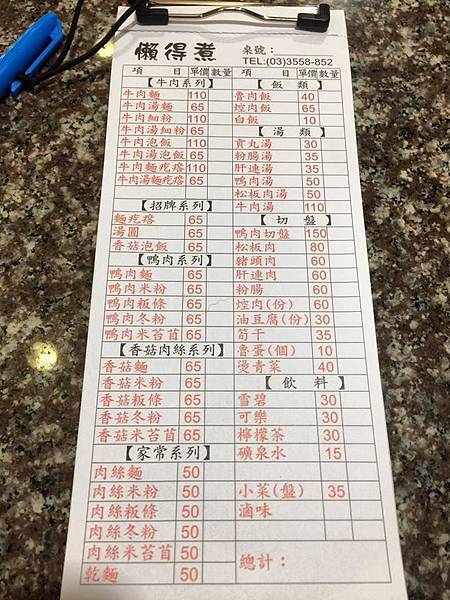 懶得煮
桌號：
TEL:(03)3558-852
項 目 單價 數量
【牛肉系列】
牛肉麵 110
牛肉湯麵 65
牛肉細粉 110
牛肉湯細粉 65
牛肉泡飯 110
牛肉湯泡飯 65
牛肉麵疙瘩 110
牛肉湯麵疙瘩 65
【招牌系列】
麵疙瘩 65
湯圓 65
香菇泡飯 65
【鴨肉系列】
鴨肉麵 65
鴨肉米粉 65
鴨肉粄條 65
鴨肉冬粉 65
鴨肉米苔苜 65
【香菇肉絲系列】
香菇麵 65
香菇米粉 65
香菇粄條 65
香菇冬粉 65
香菇米苔苜 65
【家常系列】
肉絲麵 50
肉絲米粉 50
肉絲粄條 50
肉絲冬粉 50
肉絲米苔苜 50
乾麵 50
項 目 單價 數量
【飯 類】
魯肉飯 40
焢肉飯 65
白飯 10
【湯 類】
貢丸湯 30
粉腸湯 35
肝連湯 35
鴨肉湯 50
松板肉湯 50
牛肉湯 110
【切 盤】
鴨肉切盤 150
松板肉 80
豬頭肉 60
肝連肉 60
粉腸 60
焢肉(份) 60
油豆腐(份) 30
筍干 35
魯蛋(個) 10
燙青菜 40
【飲 料】
雪碧 30
可樂 30
檸檬茶 30
礦泉水 15
小菜(盤) 35
滷味
總計：